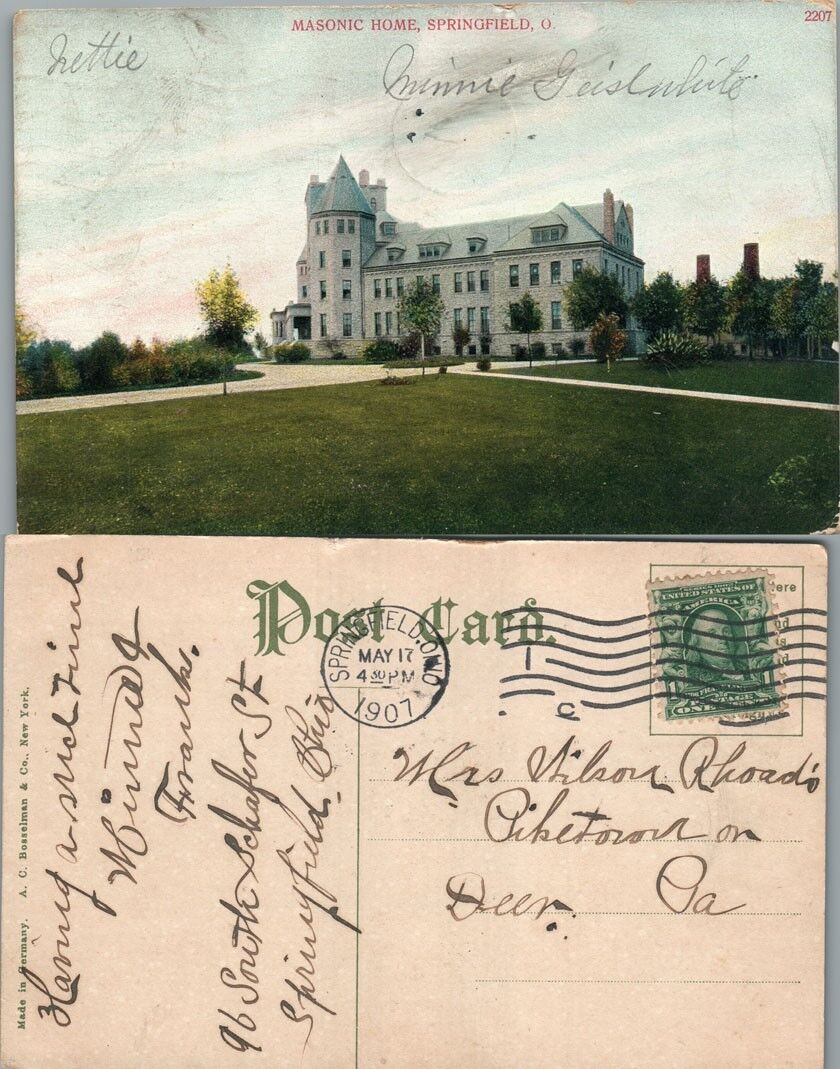 MASONIC HOME, SPRINGFIELD, O.
2207
Nettie
Minnie Geiselwhite
Post Card.
SPRINGFIELD, OHIO
MAY 17
4 30 PM
1907
1
C
ere
SERIES 1902
UNITED STATES OF
AMERICA
POSTAGE
ONE
Having a nice time
Minnie &
Frank.
96 South Schafer St
Springfield. Ohio
Made in Germany. A. C. Bosselman & Co., New York.
Mrs Wilson Rhoads
Piketown on
Deer. Pa